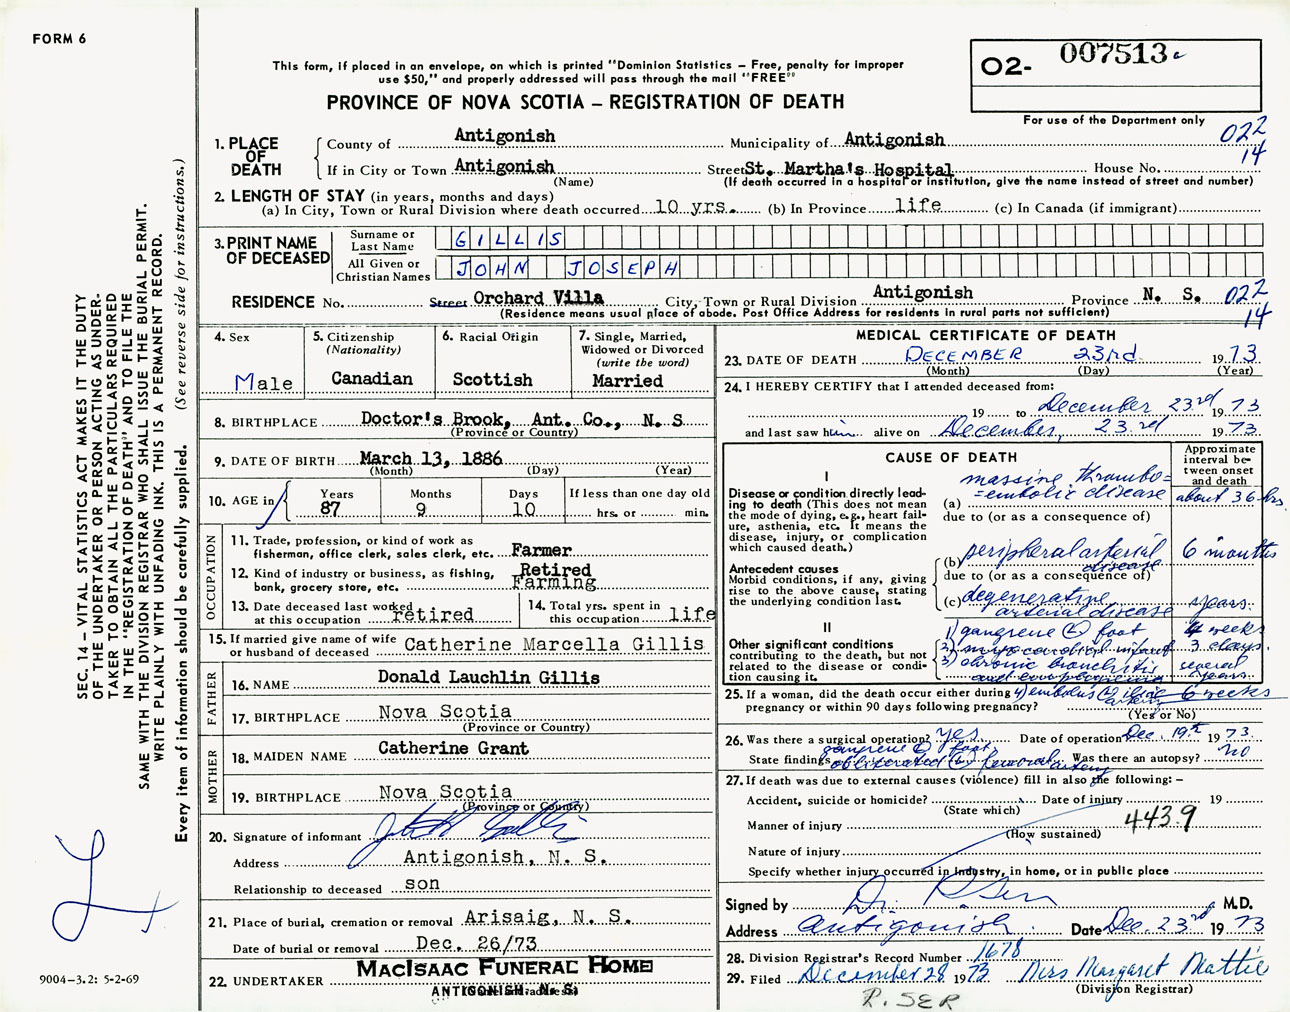 FORM 6
This form, if placed in an envelope, on which is printed "Dominion Statistics – Free, penalty for improper
use $50," and properly addressed will pass through the mail "FREE"
PROVINCE OF NOVA SCOTIA – REGISTRATION OF DEATH
O2- 007513
For use of the Department only
022
14
1. PLACE OF DEATH
County of Antigonish Municipality of Antigonish
If in City or Town Antigonish Street St. Martha's Hospital House No.
(Name) (If death occurred in a hospital or institution, give the name instead of street and number)
2. LENGTH OF STAY (in years, months and days)
(a) In City, Town or Rural Division where death occurred 10 yrs. (b) In Province life (c) In Canada (if immigrant)
3. PRINT NAME OF DECEASED
Surname or Last Name GILLIS
All Given or Christian Names JOHN JOSEPH
RESIDENCE No. Street Orchard Villa City, Town or Rural Division Antigonish Province N. S. 022
14
(Residence means usual place of abode. Post Office Address for residents in rural parts not sufficient)
4. Sex
Male
5. Citizenship
(Nationality)
Canadian
6. Racial Origin
Scottish
7. Single, Married,
Widowed or Divorced
(write the word)
Married
8. BIRTHPLACE Doctor's Brook, Ant. Co., N. S
(Province or Country)
9. DATE OF BIRTH March 13, 1886
(Month) (Day) (Year)
10. AGE in
Years 87
Months 9
Days 10
If less than one day old
hrs. or min.
OCCUPATION
11. Trade, profession, or kind of work as
fisherman, office clerk, sales clerk, etc. Farmer
12. Kind of industry or business, as fishing, Retired
bank, grocery store, etc. Farming
13. Date deceased last worked
at this occupation retired
14. Total yrs. spent in
this occupation life
15. If married give name of wife
or husband of deceased Catherine Marcella Gillis
FATHER
16. NAME Donald Lauchlin Gillis
17. BIRTHPLACE Nova Scotia
(Province or Country)
MOTHER
18. MAIDEN NAME Catherine Grant
19. BIRTHPLACE Nova Scotia
(Province or Country)
20. Signature of informant
Address Antigonish, N. S.
Relationship to deceased son
21. Place of burial, cremation or removal Arisaig, N. S.
Date of burial or removal Dec. 26/73
22. UNDERTAKER MacIsaac Funeral Home
ANTIGONISH, N. S.
MEDICAL CERTIFICATE OF DEATH
23. DATE OF DEATH DECEMBER 23rd 1973
(Month) (Day) (Year)
24. I HEREBY CERTIFY that I attended deceased from:
19 to December 23rd 1973
and last saw him alive on December, 23rd 1973.
CAUSE OF DEATH
Approximate
interval be-
tween onset
and death
I
Disease or condition directly lead-
ing to death (This does not
mean the mode of dying, e.g., heart fail-
ure, asthenia, etc. It means the
disease, injury, or complication
which caused death.)
massive thrombo=
(a) =embolic disease about 36 hrs.
due to (or as a consequence of)
Antecedent causes
Morbid conditions, if any, giving
rise to the above cause, stating
the underlying condition last.
(b) peripheral arterial disease 6 months
due to (or as a consequence of)
(c) degenerative
arterial disease years.
II
Other significant conditions
contributing to the death, but not
related to the disease or condi-
tion causing it.
1) gangrene (L) foot 4 weeks
2) myocardial infarct 3 days.
3) chronic bronchitis several
and emphysema years
4) embolus iliac artery 6 weeks
25. If a woman, did the death occur either during
pregnancy or within 90 days following pregnancy?
(Yes or No)
26. Was there a surgical operation? yes Date of operation Dec. 19th 1973.
State findings gangrene (L) foot
obliterated (L) femoral artery Was there an autopsy? no
27. If death was due to external causes (violence) fill in also the following: –
Accident, suicide or homicide? Date of injury 19
(State which)
Manner of injury 443.9
(How sustained)
Nature of injury
Specify whether injury occurred in industry, in home, or in public place
Signed by Dr. P. Sen M.D.
Address Antigonish. Date Dec. 23rd 1973
28. Division Registrar's Record Number 1678
29. Filed December 28 1973 Mrs Margaret Mattie
(Division Registrar)
P. SER
SEC. 14 – VITAL STATISTICS ACT MAKES IT THE DUTY
OF THE UNDERTAKER OR PERSON ACTING AS UNDER-
TAKER TO OBTAIN ALL THE PARTICULARS REQUIRED
IN THE "REGISTRATION OF DEATH" AND TO FILE THE
SAME WITH THE DIVISION REGISTRAR WHO SHALL ISSUE THE BURIAL PERMIT.
WRITE PLAINLY WITH UNFADING INK. THIS IS A PERMANENT RECORD.
Every item of information should be carefully supplied. (See reverse side for instructions.)
9004–3.2: 5-2-69